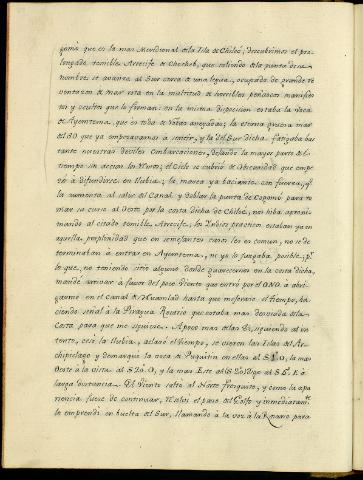 gomo que es la mas Meridional de la Isla de Chiloé; descubrimos el pro-
longado temible Arrecife de Chechob, que saliendo de la punta de su
nombre se avanza al Sur cerca de una legua, ocupado de grande re
ventazon de mar rota en la multitud de horribles peñascos manifies-
tos y ocultos que lo forman: en la misma disposicion estaba la roca
de Ayentema, que es toda de Yslotes anegados; la eterna gruesa mar
del SO que ya empezabamos à sentir, y la del Sur dicha fatigaba bas
tante nuestras deviles embarcaciones, dejando la mayor parte del
tiempo sin accion los Vientos; el Cielo se cubriò de obscuridad que empe-
zò à difundirse en llubia; la marea ya baciante con fuerza, q.e
la aumenta al salir del Canal y doblar la punta de Cogomó para to
mar su curso al Oeste por la costa dicha de Chiloé, nos hiba aproxi-
mando al citado temible Arrecife; los Yndios practicos estaban ya en
aquella perplexidad que en semejantes casos les es comun, no se de
terminaban à entrar en Ayentema, ni yo lo juzgaba posible; p.r
lo que, no teniendo sitio alguno donde guarecernos en la costa dicha,
mandé arrivar à favor del poco Viento que entró por el ONO à abri-
garme en el Canal de Huamlad hasta que mejorase el tiempo, ha-
ciendo señal à la Piragua Rosario que estaba mas desviada de la
Costa para que me siguiese. A poco mas de las 2 siguiendo al in
tento, cesó la llubia, aclaró el tiempo, se vieron las Islas del Ar-
chipielago y demarqué la roca de Puquitin en ellas al S O, la mas
Oeste à la vista al S O, y la mas Este al S E à
larga distancia. El Viento saltó al Norte fresquito, y como la apa
riencia fuese de continuar, resolví el paso del Golfo è inmediatam.te
lo emprendí en buelta del Sur, llamando à la voz à la Rosario para